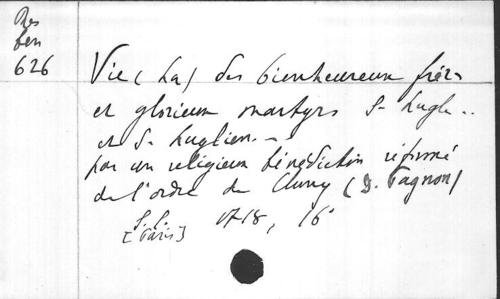 Res
ben
626
Vie (La) des bienheureux frères
et glorieux martyrs S. Lugle..
et S. Luglien. -
par un religieux bénédictin réformé
de l'ordre de Cluny (D. Pagnon)
S.l.
[Paris] 1718, 16°